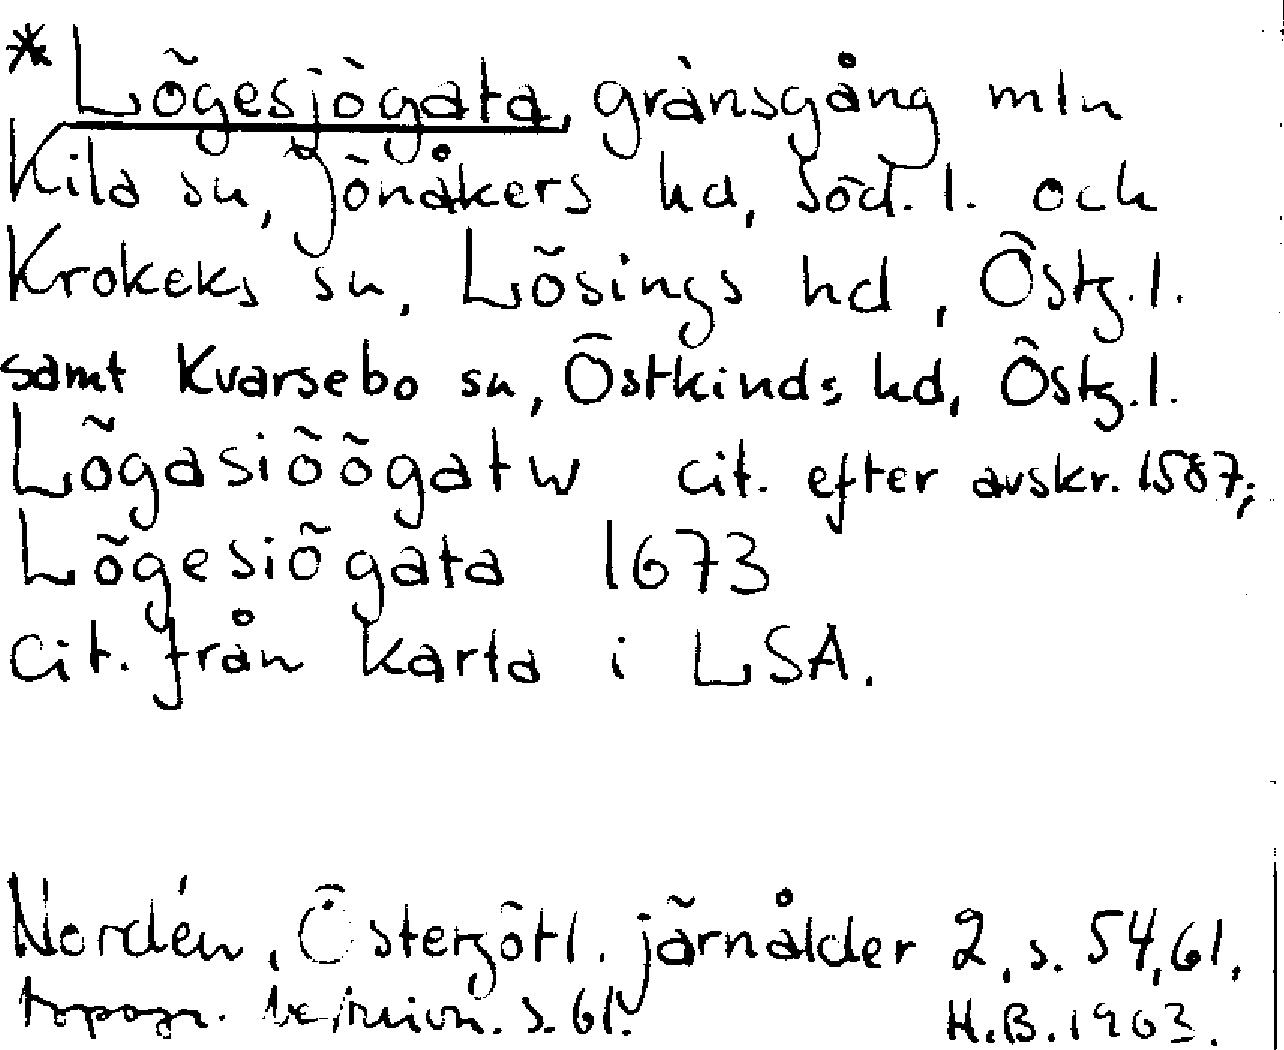 *Lögesjögata, gränsgång mln
Kila sn, Jönåkers hd, Söd. l. och
Krokeks sn, Lösings hd, Östg. l.
samt Kvarsebo sn, Östkinds hd, Östg. l.
Lögasiöögatw cit. efter avskr. 1587;
Lögesiögata 1673
cit. från karta i LSA.
Nordén, Östergötl. järnålder 2, s. 54, 61.
topogr. s. 61.
H.B. 1963.